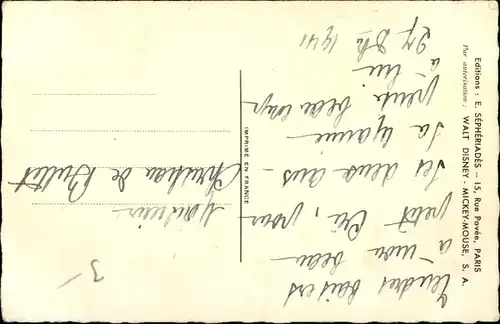 Editions : E. SÉPHÉRIADÈS — 15, Rue Pavée, PARIS
Par autorisation : WALT DISNEY - MICKEY-MOUSE, S. A.
IMPRIMÉ EN FRANCE
27 1941
à
pense beaucoup
Sa Maman
Ses deux ans -
petit , pour
à mon beau
Tendres baisers
Monsieur
Christian de
3/